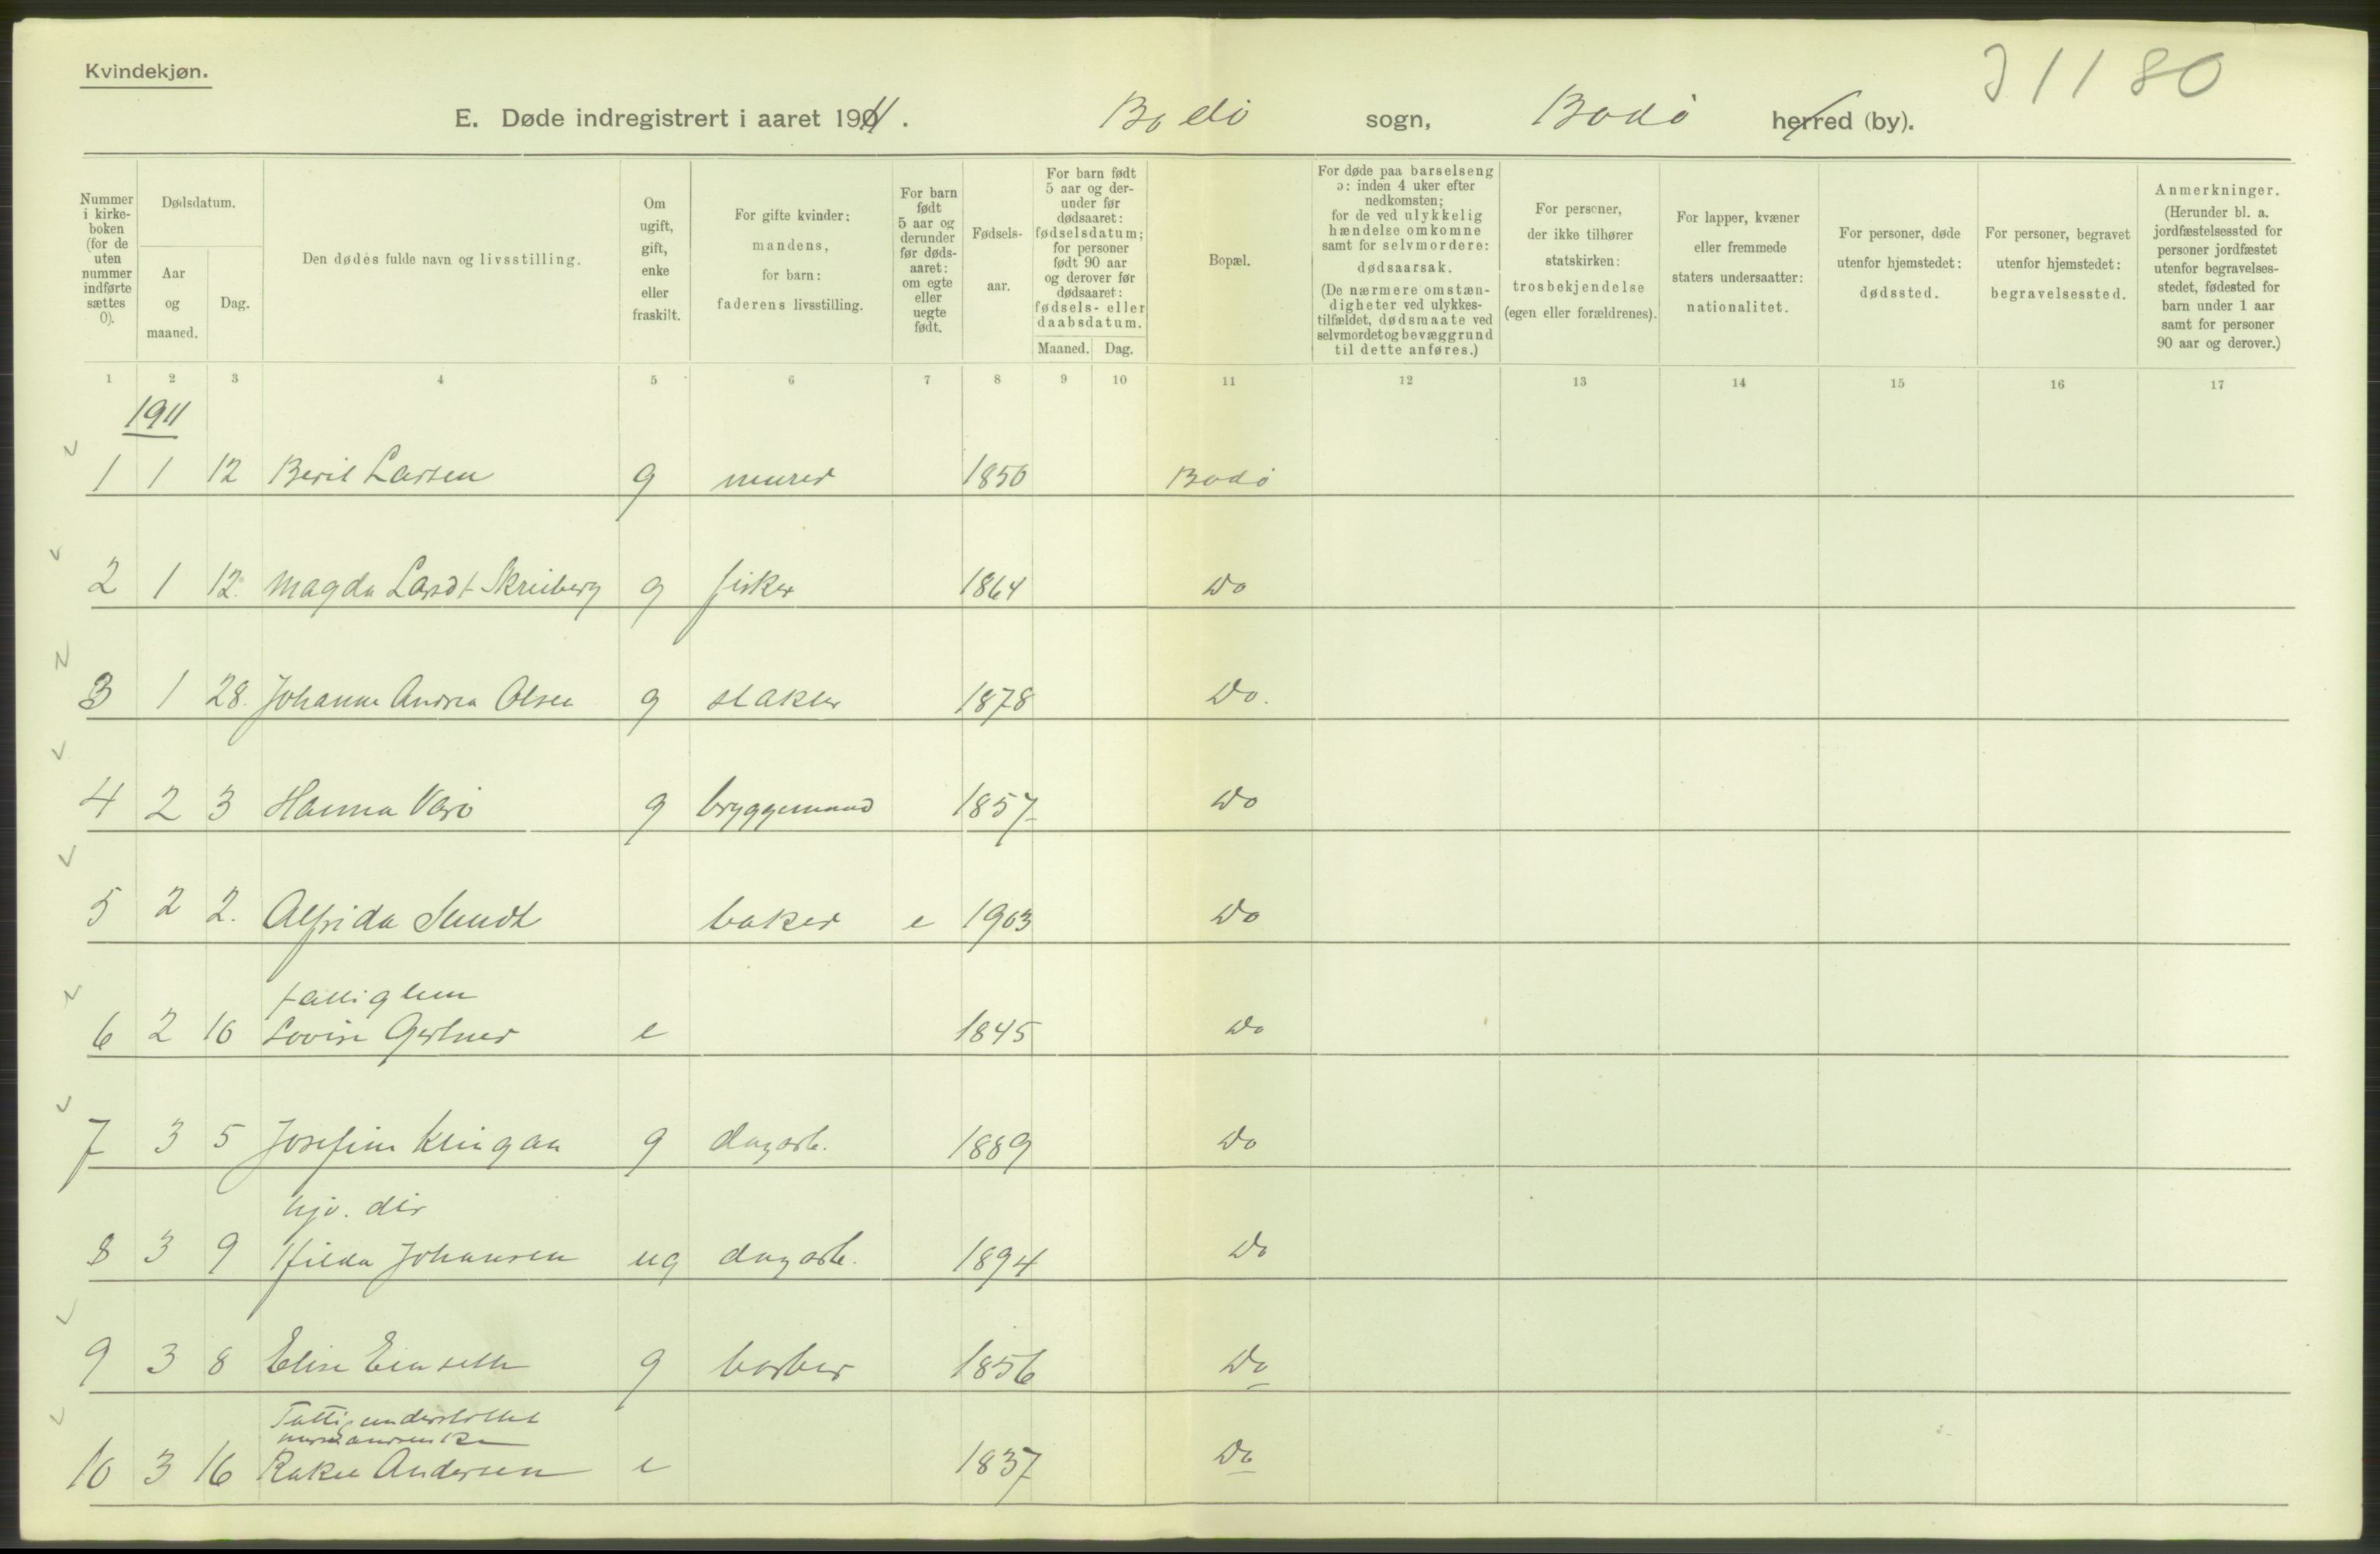 Kvindekjøn.
J 1180
E. Døde indregistrert i aaret 1911. Bodø sogn, Bodø herred (by).
Nummer i kirke- boken (for de uten nummer indførte sættes 0).
Dødsdatum.
Aar og maaned.
Dag.
Den dødes fulde navn og livsstilling.
Om ugift, gift, enke eller fraskilt.
For gifte kvinder: mandens, for barn: faderens livsstilling.
For barn født 5 aar og derunder før døds- aaret: om egte eller uegte født.
Fødsels- aar.
For barn født 5 aar og der- under før dødsaaret: fødselsdatum; for personer født 90 aar og derover før dødsaaret: fødsels- eller daabsdatum.
Maaned. Dag.
Bopæl.
For døde paa barselseng ɔ: inden 4 uker efter nedkomsten; for de ved ulykkelig hændelse omkomne samt for selvmordere: dødsaarsak. (De nærmere omstæn- digheter ved ulykkes- tilfældet, dødsmaate ved selvmordet og bevæggrund til dette anføres.)
For personer, der ikke tilhører statskirken: trosbekjendelse (egen eller forældrenes).
For lapper, kvæner eller fremmede staters undersaatter: nationalitet.
For personer, døde utenfor hjemstedet: dødssted.
For personer, begravet utenfor hjemstedet: begravelsessted.
Anmerkninger. (Herunder bl. a. jordfæstelsessted for personer jordfæstet utenfor begravelses- stedet, fødested for barn under 1 aar samt for personer 90 aar og derover.)
1 2 3 4 5 6 7 8 9 10 11 12 13 14 15 16 17
1911
1 1 12 Berit Larsen g murer 1850 Bodø
2 1 12. Magda Skreiberg g fisker 1864 Do
3 1 28. Johanne Andrea Olsen g slakter 1878 Do.
4 2 3 Hanna g bryggemand 1857 Do
5 2 2. Alfrida Sundt baker e 1903 Do
fattiglem
6 2 16 Lovise Gertner e 1845 Do
7 3 5 Josefine Klingan g dagarb. 1889 Do
hjv. dtr
8 3 9 Hilda Johansen ug dagarb. 1894 Do
9 3 8 Elise g barber 1856 Do
Fattigunderstøttet
10 3 16 Rakel Andersen e 1837 Do